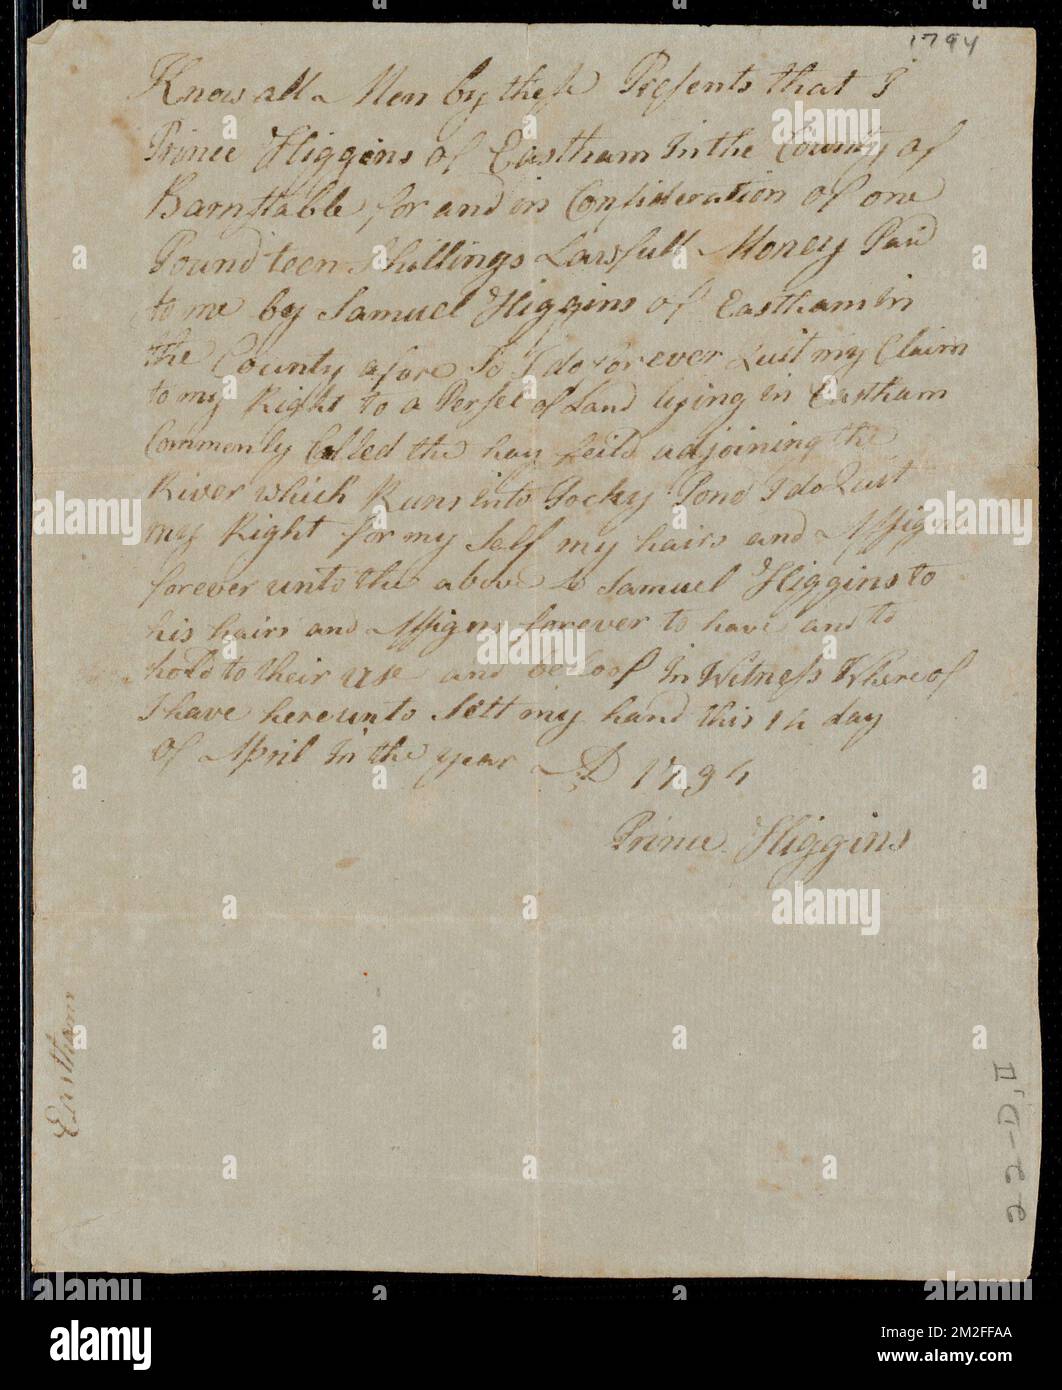 1794
Know all Men by these Presents that I
Prince Higgins of Eastham In the County of
Barnstable for and in Consideration of one
Pound teen Shillings Lawfull Money Paid
to me by Samuel Higgins of Eastham in
the County afore So I do forever Quit my Claim
to my Right to a Persel of Land lying in Eastham
Commonly Called the hay feild adjoining the
River which Runs into Pond I do Quit
my Right for my Self my hairs and Assigns
forever unto the above Samuel Higgins to
his hairs and Assigns forever to have and to
hold to their use and behoof In Witness Whereof
I have hereunto Sett my hand this 14 day
of April In the year AD 1794
Prince Higgins
Eastham
II, D-22
alamy
Image ID: 2M2FFAA
www.alamy.com